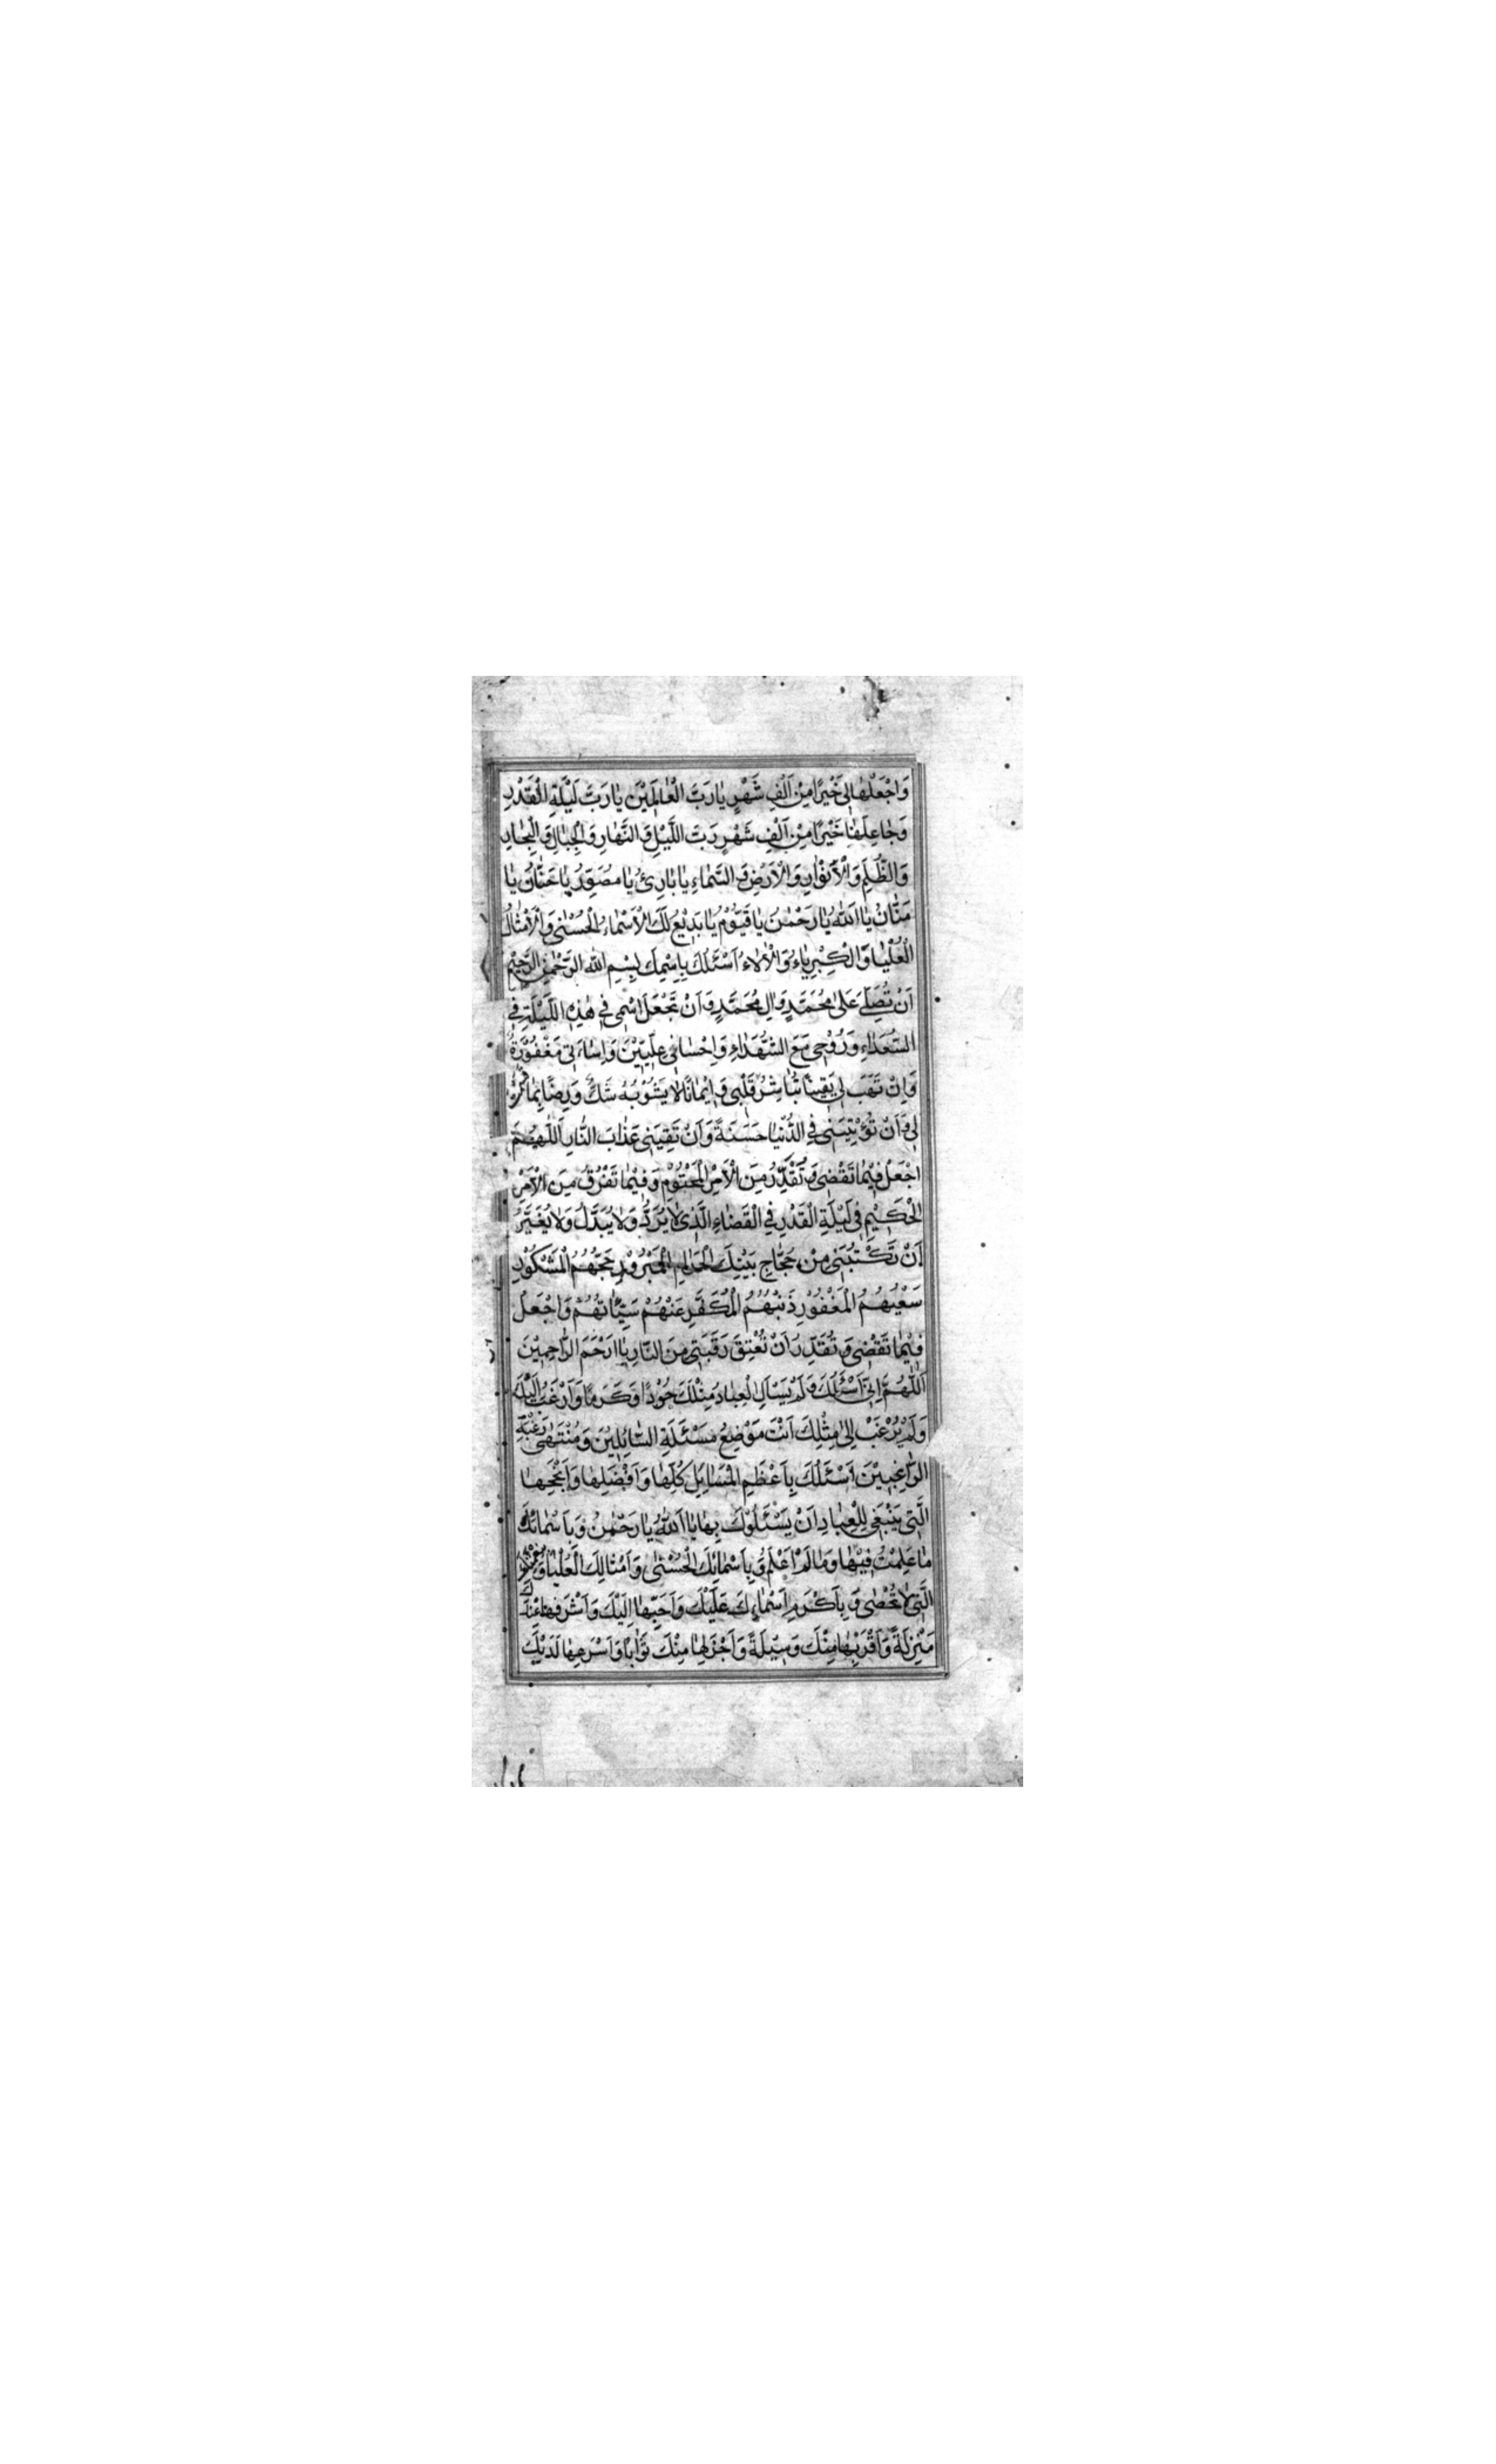 وَاجْعَلْهٰا لِى خَيْرًا مِنْ اَلْفِ شَهْرٍ يٰا رَبَّ الْعٰالَمِيْنَ يٰا رَبَّ لَيْلَةِ الْقَدْرِ
وَجٰاعِلَهٰا خَيْرًا مِنْ اَلْفِ شَهْرٍ رَبَّ اللَّيْلِ وَ النَّهٰارِ وَ الْجِبٰالِ وَ الْبِحٰارِ
وَالظُّلَمِ وَ الْاَنْوٰارِ وَ الْاَرْضِ وَ السَّمٰاءِ يٰا بٰارِئُ يٰا مُصَوِّرُ يٰا حَنّٰانُ يٰا
مَنّٰانُ يٰا اَللّٰهُ يٰا رَحْمٰنُ يٰا قَيُّوْمُ يٰا بَدِيْعُ لَكَ الْاَسْمٰاءُ الْحُسْنٰى وَ الْاَمْثٰالُ
الْعُلْيٰا وَ الْكِبْرِيٰاءُ وَ الْاٰلٰاءُ اَسْئَلُكَ بِاِسْمِكَ بِسْمِ اللّٰهِ الرَّحْمٰنِ الرَّحِيْمِ
اَنْ تُصَلِّىَ عَلٰى مُحَمَّدٍ وَ اٰلِ مُحَمَّدٍ وَ اَنْ تَجْعَلَ اسْمِى فِى هٰذِهِ اللَّيْلَةِ فِى
السُّعَدٰاءِ وَ رُوْحِى مَعَ الشُّهَدٰاءِ وَ اِحْسٰانِى فِى عِلِّيِّيْنَ وَ اِسٰاءَتِى مَغْفُوْرَةً
وَ اَنْ تَهَبَ لِى يَقِيْنًا تُبٰاشِرُ قَلْبِى وَ اِيْمٰانًا لٰا يَشُوْبُهُ شَكٌّ وَ رِضًا بِمٰا
لِى وَ اَنْ تُؤْتِيَنِى فِى الدُّنْيٰا حَسَنَةً وَ اَنْ تَقِيَنِى عَذٰابَ النّٰارِ اَللّٰهُمَّ
اجْعَلْ فِيْمٰا تَقْضِى وَ تُقَدِّرُ مِنَ الْاَمْرِ الْمَحْتُوْمِ وَ فِيْمٰا تَفْرُقُ مِنَ الْاَمْرِ
الْحَكِيْمِ فِى لَيْلَةِ الْقَدْرِ فِى الْقَضٰاءِ الَّذِى لٰا يُرَدُّ وَ لٰا يُبَدَّلُ وَ لٰا يُغَيَّرُ
اَنْ تَكْتُبَنِى مِنْ حُجّٰاجِ بَيْتِكَ الْحَرٰامِ الْمَبْرُوْرِ حَجُّهُمُ الْمَشْكُوْرِ
سَعْيُهُمُ الْمَغْفُوْرِ ذَنْبُهُمُ الْمُكَفَّرِ عَنْهُمْ سَيِّئٰاتُهُمْ وَ اجْعَلْ
فِيْمٰا تَقْضِى وَ تُقَدِّرُ اَنْ تُعْتِقَ رَقَبَتِى مِنَ النّٰارِ يٰا اَرْحَمَ الرّٰاحِمِيْنَ
اَللّٰهُمَّ اِنِّى اَسْئَلُكَ وَ لَمْ يَسْاَلِ الْعِبٰادُ مِثْلَكَ جُوْدًا وَ كَرَمًا وَ اَرْغَبُ اِلَيْكَ
وَ لَمْ يُرْغَبْ اِلٰى مِثْلِكَ اَنْتَ مَوْضِعُ مَسْئَلَةِ السّٰائِلِيْنَ وَ مُنْتَهٰى رَغْبَةِ
الرّٰاغِبِيْنَ اَسْئَلُكَ بِاَعْظَمِ الْمَسٰائِلِ كُلِّهٰا وَ اَفْضَلِهٰا وَ اَنْجَحِهٰا
الَّتِى يَنْبَغِى لِلْعِبٰادِ اَنْ يَسْئَلُوْكَ بِهٰا يٰا اَللّٰهُ يٰا رَحْمٰنُ وَ بِاَسْمٰائِكَ
مٰا عَلِمْتُ مِنْهٰا وَ مٰا لَمْ اَعْلَمْ وَ بِاَسْمٰائِكَ الْحُسْنٰى وَ اَمْثٰالِكَ الْعُلْيٰا وَ
الَّتِى لٰا تُحْصٰى وَ بِاَكْرَمِ اَسْمٰاءِكَ عَلَيْكَ وَ اَحَبِّهٰا اِلَيْكَ وَ اَشْرَفِهٰا عِنْدَكَ
مَنْزِلَةً وَ اَقْرَبِهٰا مِنْكَ وَسِيْلَةً وَ اَجْزَلِهٰا مِنْكَ ثَوٰابًا وَ اَسْرَعِهٰا لَدَيْكَ